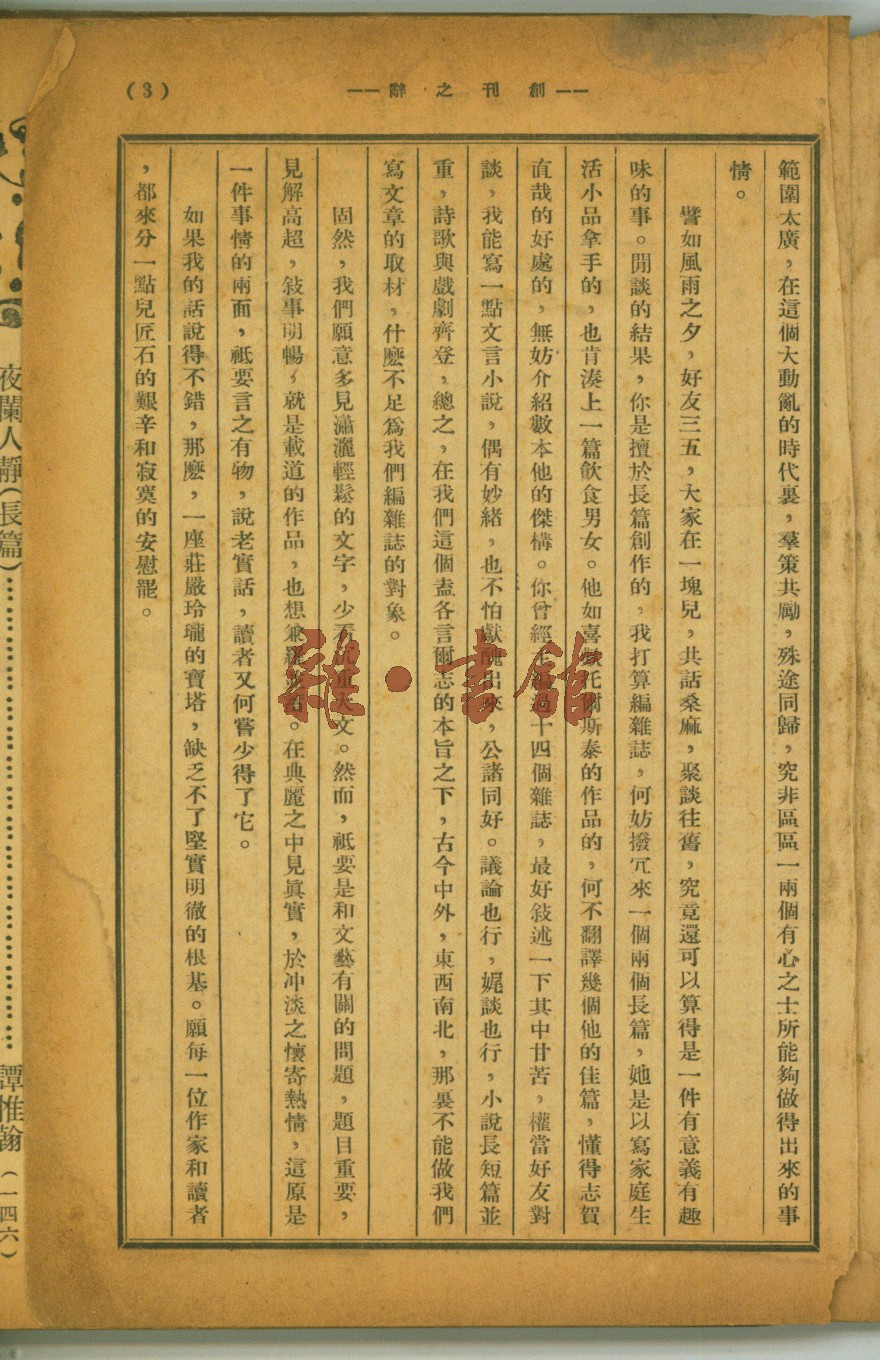 ——創刊之辭——
(3)
範圍太廣，在這個大動亂的時代裏，羣策共勵，殊途同歸，究非區區一兩個有心之士所能夠做得出來的事
情。
譬如風雨之夕，好友三五，大家在一塊兒，共話桑麻，聚談往舊，究竟還可以算得是一件有意義有趣
味的事。閒談的結果，你是擅於長篇創作的，我打算編雜誌，何妨撥冗來一個兩個長篇，她是以寫家庭生
活小品拿手的，也肯湊上一篇飲食男女。他如喜歡托爾斯泰的作品的，何不翻譯幾個他的佳篇，懂得志賀
直哉的好處的，無妨介紹數本他的傑構。你曾經主編過十四個雜誌，最好敍述一下其中甘苦，權當好友對
談，我能寫一點文言小說，偶有妙緒，也不怕獻醜出來，公諸同好。議論也行，娓談也行，小說長短篇並
重，詩歌與戲劇齊登，總之，在我們這個盍各言爾志的本旨之下，古今中外，東西南北，那裏不能做我們
寫文章的取材，什麼不足爲我們編雜誌的對象。
固然，我們願意多見瀟灑輕鬆的文字，少看沉重大文。然而，祇要是和文藝有關的問題，題目重要，
見解高超，敍事明暢，就是載道的作品，也想兼羅並蓄。在典麗之中見眞實，於冲淡之懷寄熱情，這原是
一件事情的兩面，祇要言之有物，說老實話，讀者又何嘗少得了它。
如果我的話說得不錯，那麼，一座莊嚴玲瓏的寶塔，缺乏不了堅實明徹的根基。願每一位作家和讀者
，都來分一點兒匠石的艱辛和寂寞的安慰罷。
夜闌人靜（長篇）………………譚惟翰（一四六）
雜·書館